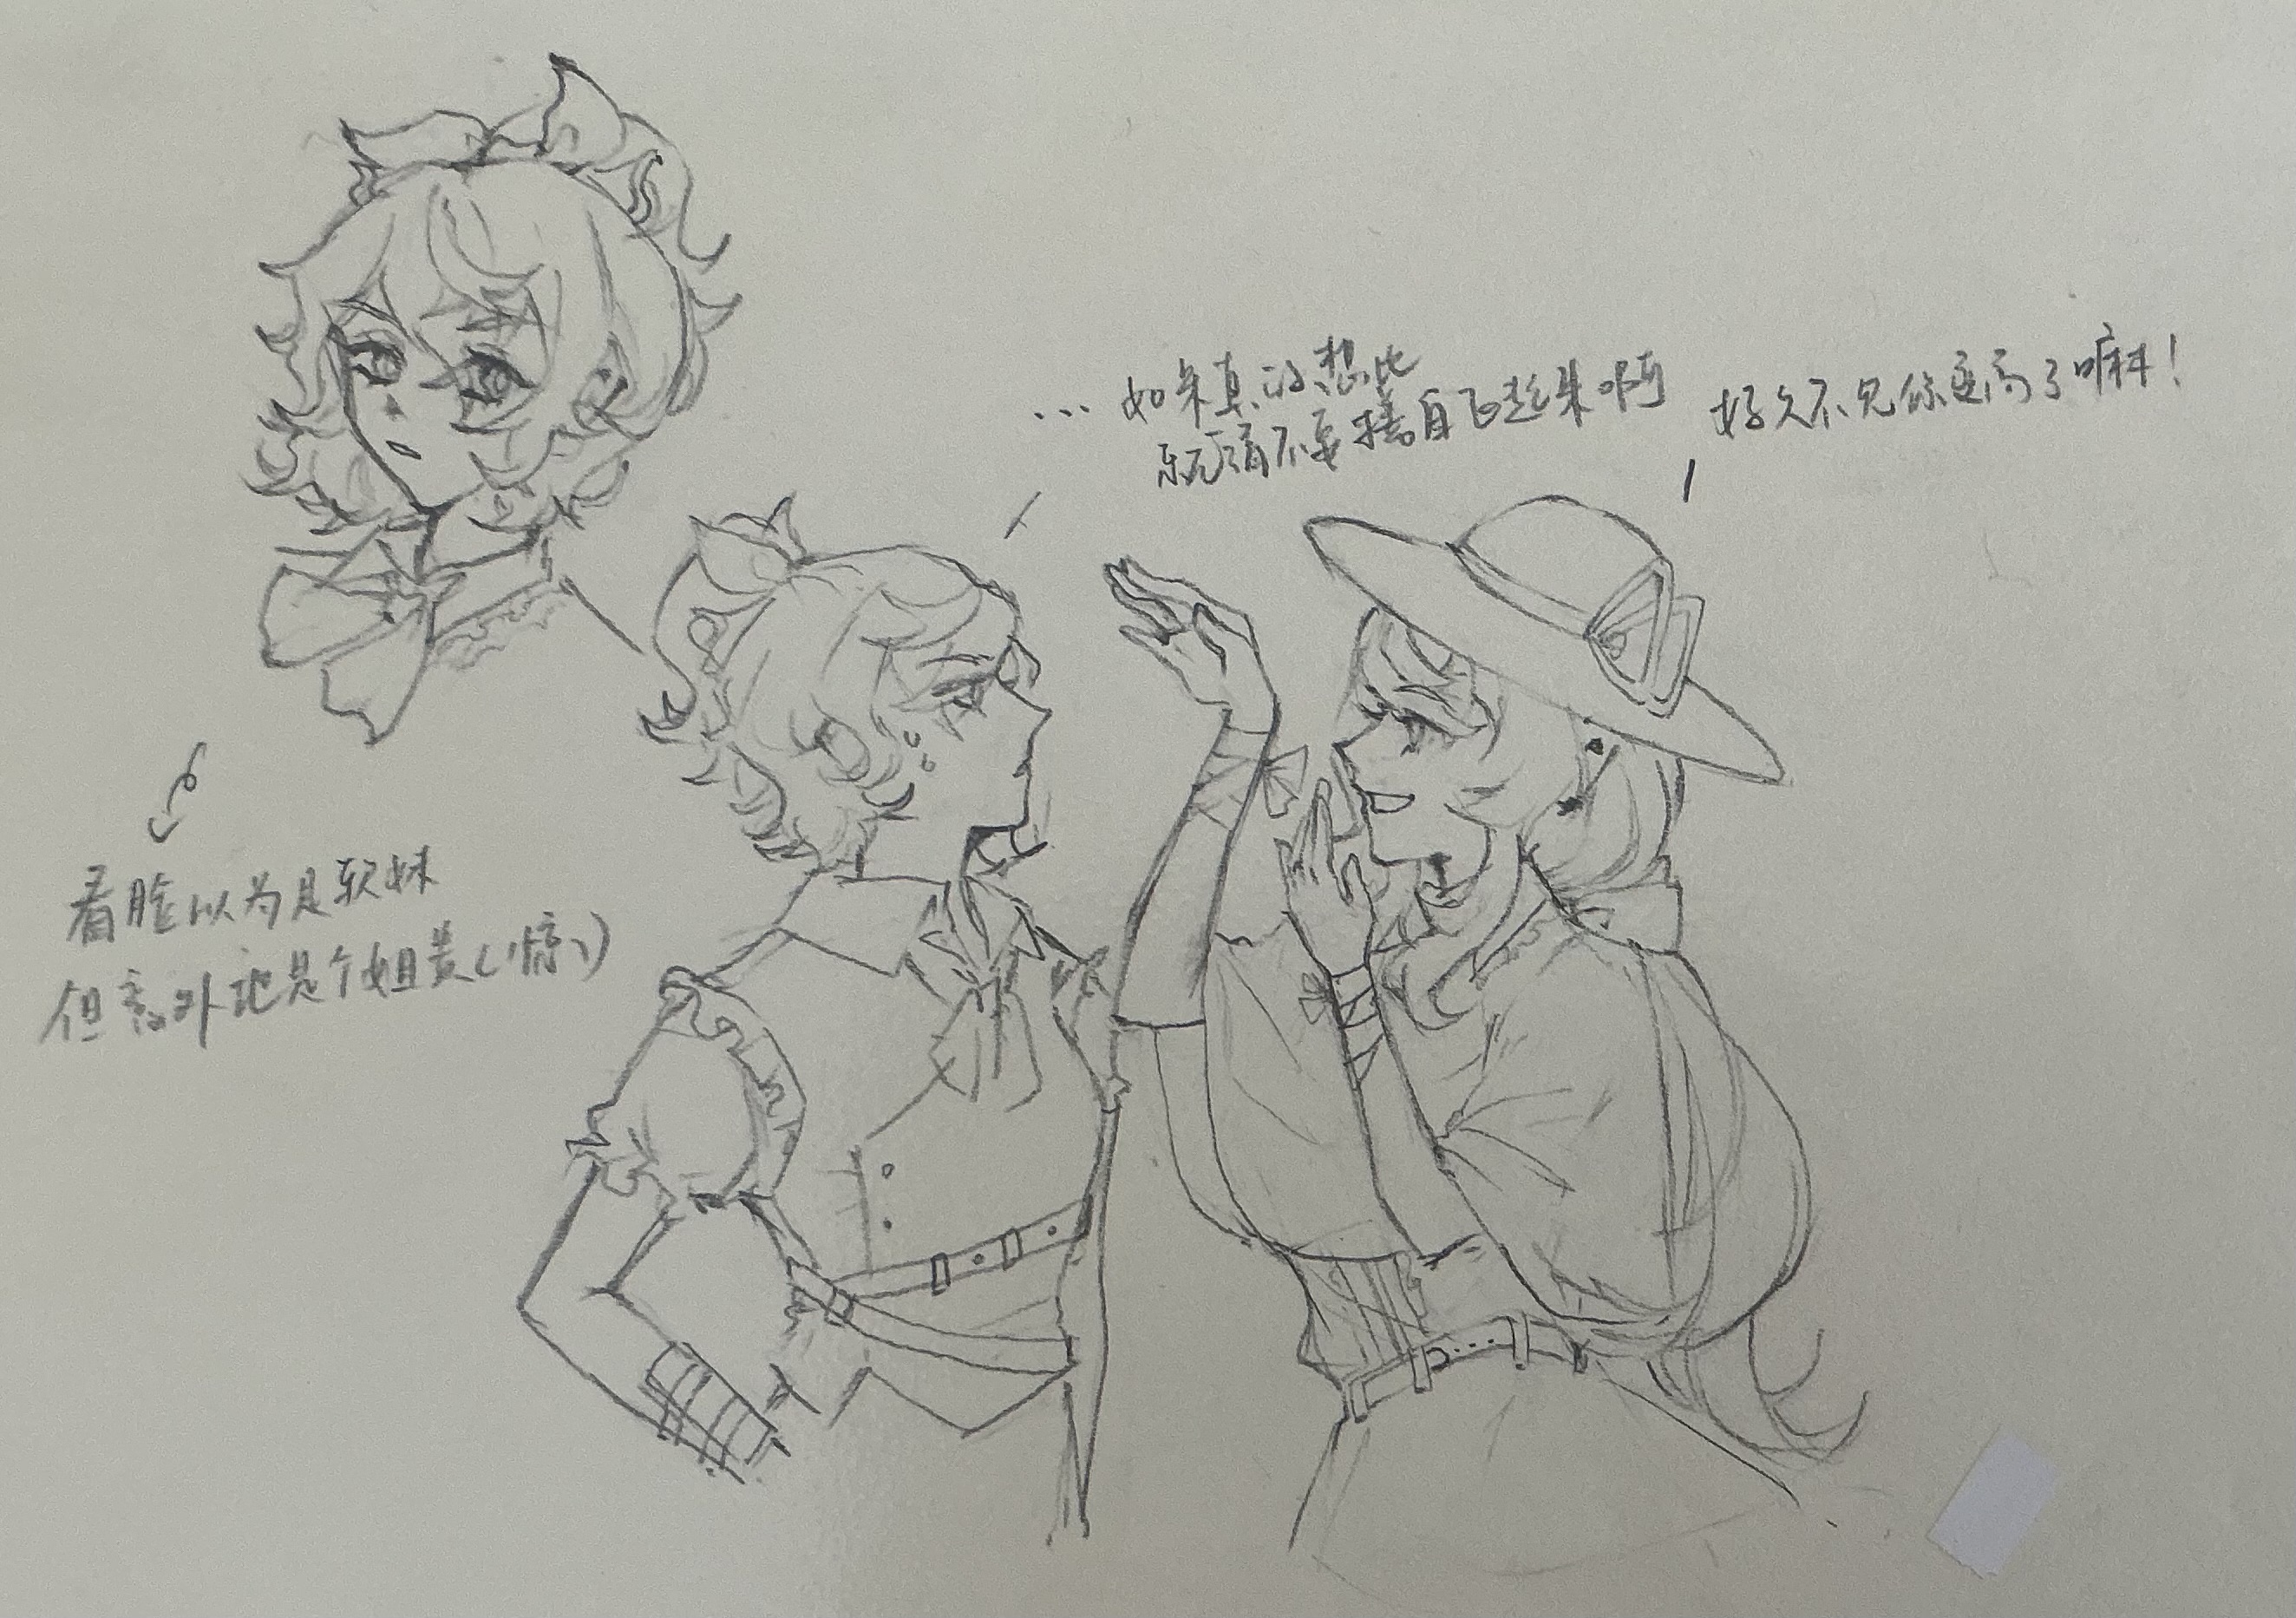 …如果真的想比
就请不要擅自飞起来啊
好久不见你变高了嘛!
看脸以为是软妹
但意外地是个姐贵(惊)